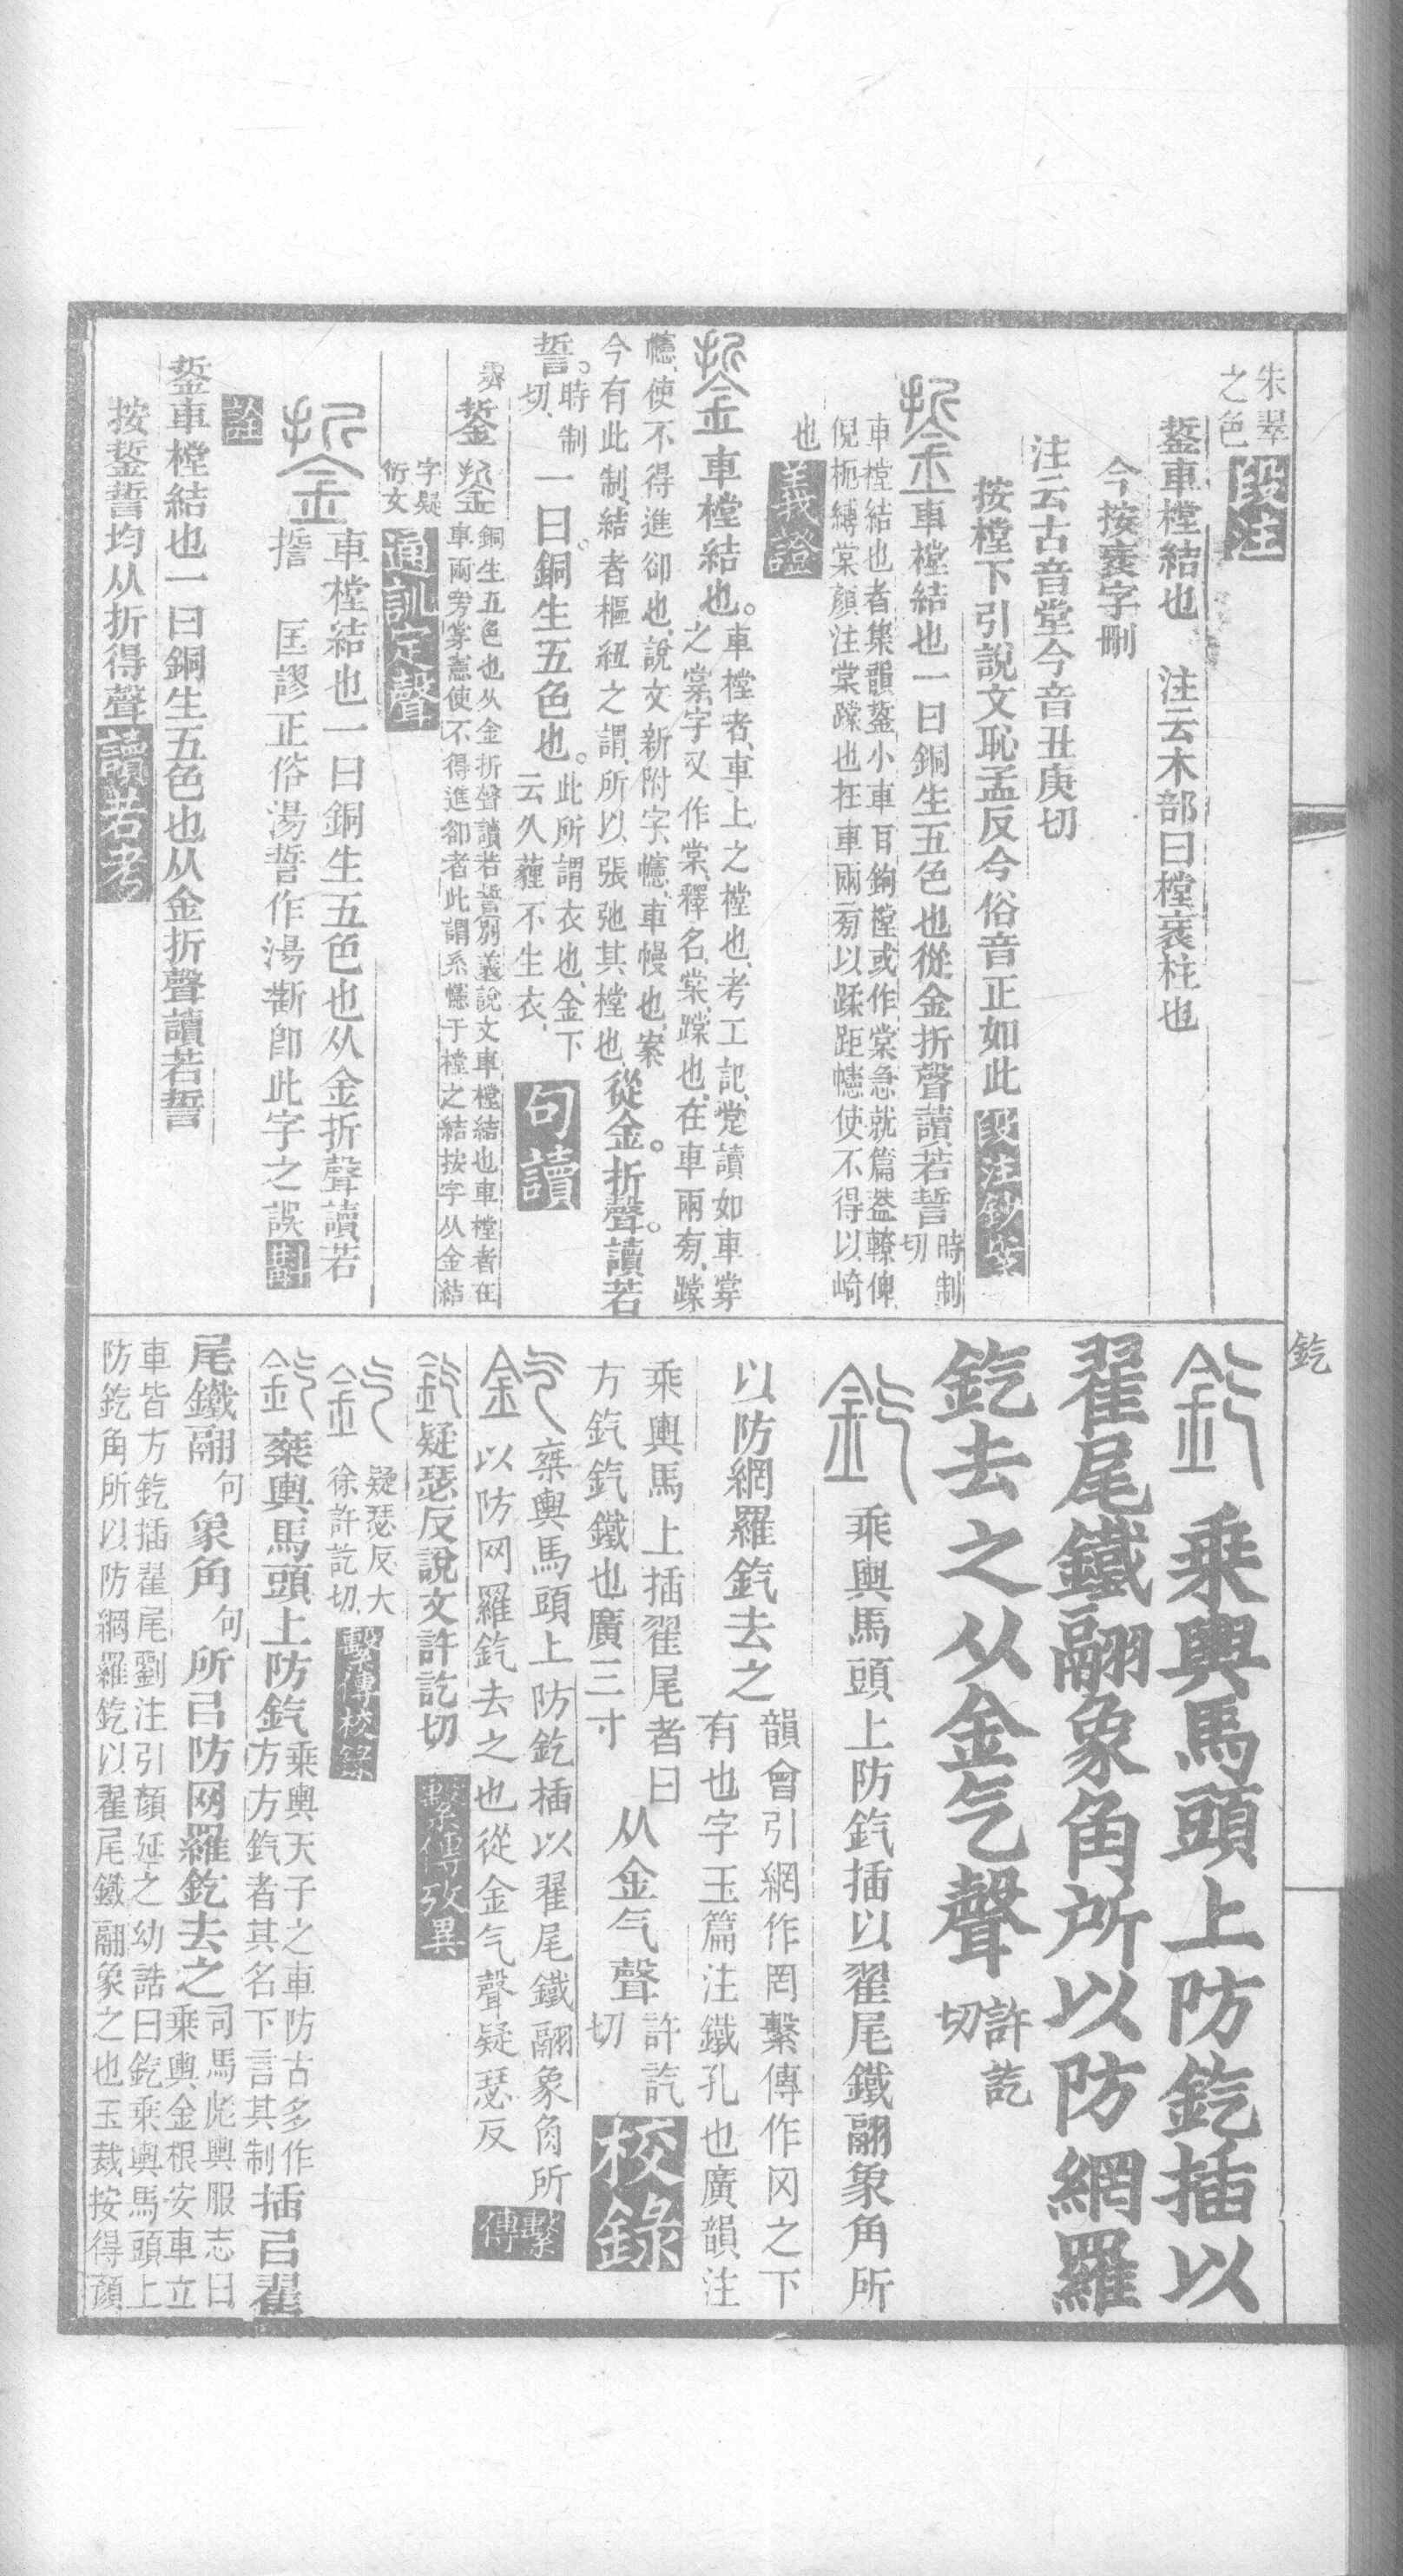 朱翠
之色
段注
銴車樘結也　注云木部曰樘衺柱也
今按衺字刪
注云古音堂今音丑庚切
按樘下引說文恥孟反今俗音正如此 段注鈔案
銴車樘結也一曰銅生五色也從金折聲讀若誓
時制
切
車樘結也者集韻銴小車耳鉤樘或作棠急就篇蓋轑俾
倪枙縛棠顏注棠蹀也在車兩旁以蹂距幰使不得以崎
也
義證
銴車樘結也。
車樘者、車上之樘也、考工記、堂讀如車掌
之棠、字又作棠、釋名、棠、蹚也、在車兩旁、蹚
幰、使不得進卻也、說文新附字、幰、車幔也、案
今有此制、結者樞紐之謂、所以張弛其樘也
從金。折聲。讀若
誓。
時制
切、
一曰。銅生五色也。
此所謂衣也、金下
云久薶不生衣、
句讀
銴
銅生五色也从金折聲讀若誓別義說文車樘結也車樘者在
車兩旁掌憲使不得進卻者此謂系幰于樘之結按字从金結
字疑
衍文
通訓定聲
銴車樘結也一曰銅生五色也从金折聲讀若
㨗　匡謬正俗湯誓作湯斷卽此字之誤
斠
詮
銴車樘結也一曰銅生五色也从金折聲讀若誓
按銴誓均从折得聲
讀若考
釳
釳乘輿馬頭上防釳插以
翟尾鐵翮象角所以防網羅
釳去之从金气聲
許訖
切
釳乘輿馬頭上防釳插以翟尾鐵翮象角所
以防網羅釳去之
韻會引網作罔繫傳作冈之下
有也字玉篇注鐵孔也廣韻注
乘輿馬上插翟尾者曰
方釳釳鐵也廣三寸
从金气聲
許訖
切
校錄
釳桀輿馬頭上防釳插以翟尾鐵翮象角所
以防网羅釳去之也從金气聲疑瑟反
繫
傳
釳疑瑟反說文許訖切
繫傳攷異
釳
疑瑟反大
徐許訖切、
繫傳校錄
釳椉輿馬頭上防釳
乘輿天子之車防古多作
方方釳者其名下言其制
插㠯翟
尾鐵翮句象角句所㠯防网羅釳去之
司馬彪輿服志曰
乘輿金根安車立
車皆方釳插翟尾劉注引顏延之幼誥曰釳乘輿馬頭上
防釳角所以防網羅釳以翟尾鐵翮象之也玉裁按得顏